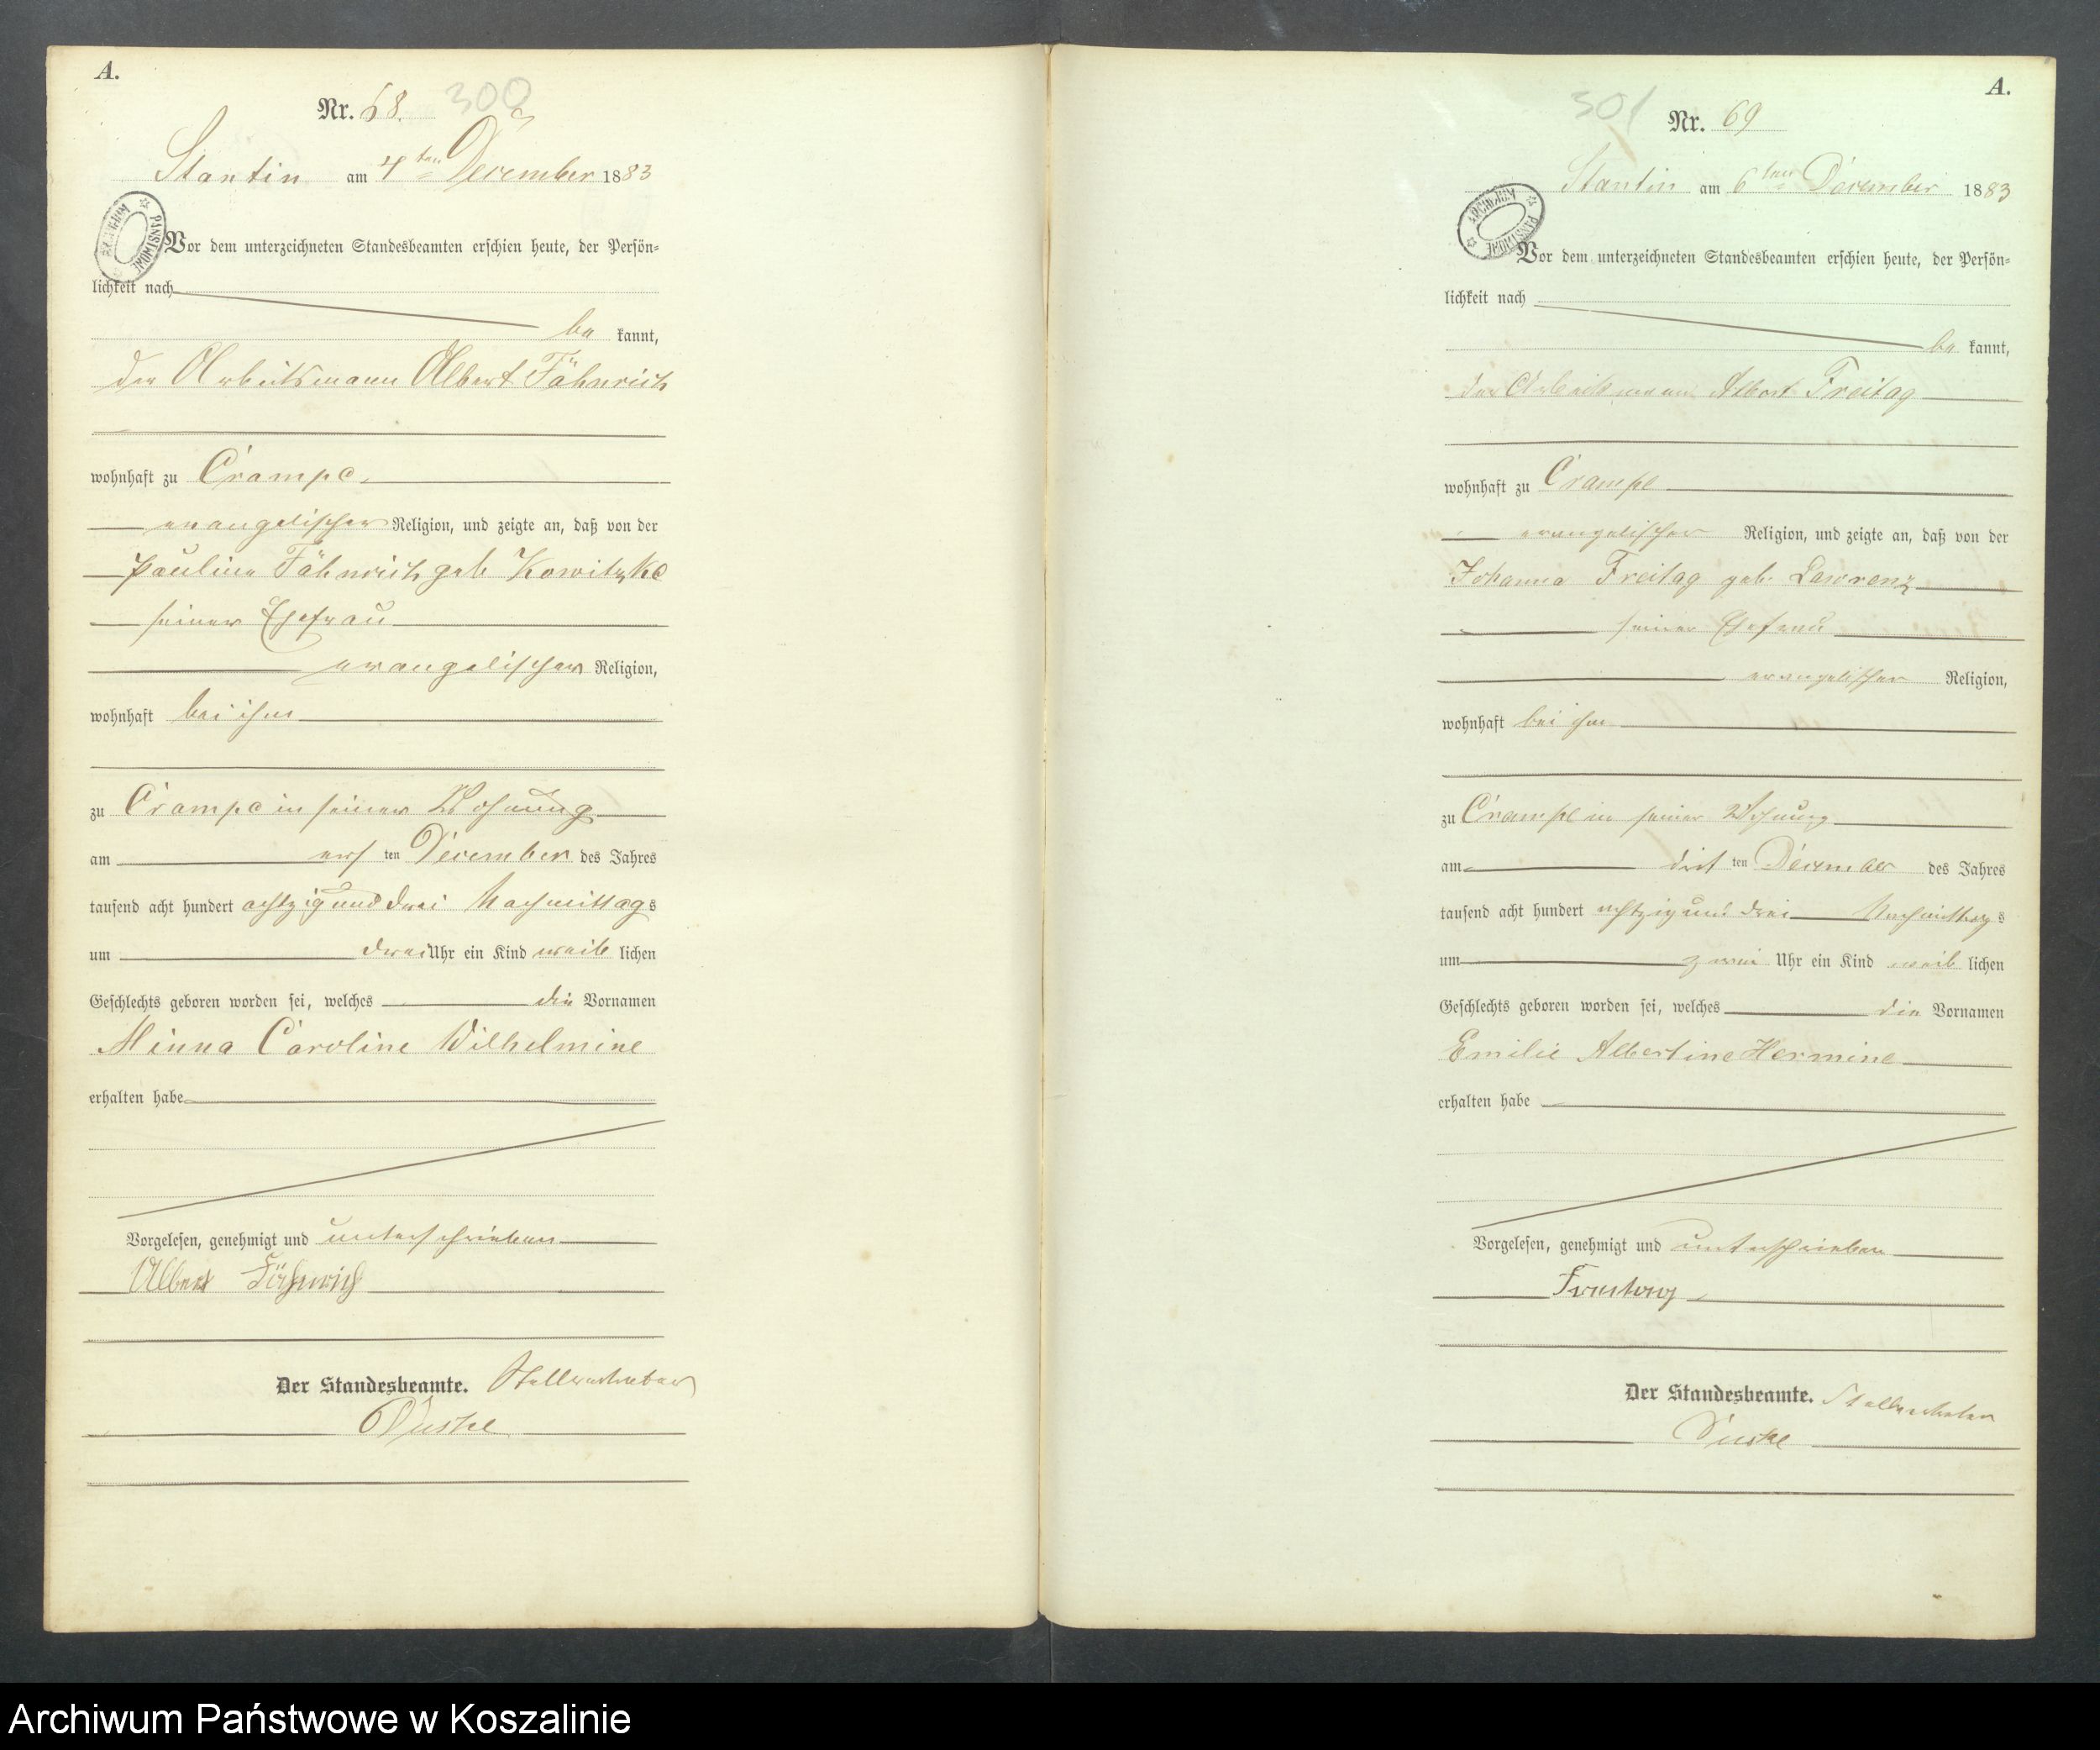 A.
Nr. 68. 300
Stantin am 4ten December 1883
ARCHIWUM PAŃSTWOWE
Vor dem unterzeichneten Standesbeamten erschien heute, der Persön=
lichkeit nach
be kannt,
der Arbeitsmann Albert Fähnrich
wohnhaft zu Crampe,
evangelischer Religion, und zeigte an, daß von der
Pauline Fähnrich geb Kowitzke
seiner Ehefrau
evangelischer Religion,
wohnhaft bei ihm
zu Crampe in seiner Wohnung
am ers ten December des Jahres
tausend acht hundert achtzig und drei Nachmittags
um drei Uhr ein Kind weib lichen
Geschlechts geboren worden sei, welches die Vornamen
Minna Caroline Wilhelmine
erhalten habe
Vorgelesen, genehmigt und unterschrieben
Albert Fähnrich
Der Standesbeamte. Stellvertreter
A.
301 Nr. 69
Stantin am 6ten December 1883
ARCHIWUM PAŃSTWOWE
Vor dem unterzeichneten Standesbeamten erschien heute, der Persön=
lichkeit nach
be kannt,
der Arbeitsmann Albert Freitag
wohnhaft zu Crampe
evangelischer Religion, und zeigte an, daß von der
Johanna Freitag geb. Lawrenz
seiner Ehefrau
evangelischer Religion,
wohnhaft bei ihm
zu Crampe in seiner Wohnung
am drit ten December des Jahres
tausend acht hundert achtzig und drei Nachmittags
um zwei Uhr ein Kind weib lichen
Geschlechts geboren worden sei, welches die Vornamen
Emilie Albertine Hermine
erhalten habe
Vorgelesen, genehmigt und unterschrieben
Freitag
Der Standesbeamte. Stellvertreter
Archiwum Państwowe w Koszalinie